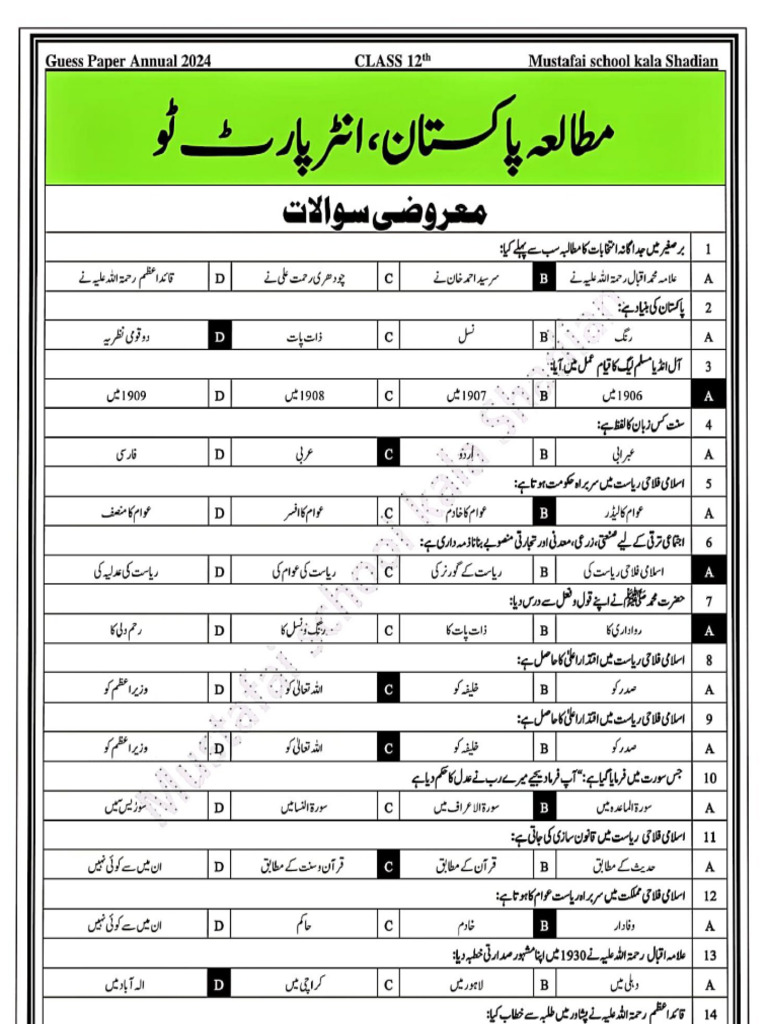 Guess Paper Annual 2024 CLASS 12th Mustafai school kala Shadian
مطالعہ پاکستان، انٹر پارٹ ٹو
معروضی سوالات
1 برصغیر میں جداگانہ انتخابات کا مطالبہ سب سے پہلے کیا:
A علامہ محمد اقبال رحمۃ اللہ علیہ نے B سرسید احمد خان نے C چودھری رحمت علی نے D قائد اعظم رحمۃ اللہ علیہ نے
2 پاکستان کی بنیاد ہے:
A رنگ B نسل C ذات پات D دو قومی نظریہ
3 آل انڈیا مسلم لیگ کا قیام عمل میں آیا:
A 1906 میں B 1907 میں C 1908 میں D 1909 میں
4 سنت کس زبان کا لفظ ہے:
A عبرانی B اردو C عربی D فارسی
5 اسلامی فلاحی ریاست میں سربراہ حکومت ہوتا ہے:
A عوام کا لیڈر B عوام کا خادم C عوام کا افسر D عوام کا منصف
6 اجتماعی ترقی کے لیے صنعتی، زرعی، معدنی اور تجارتی منصوبے بنانا ذمہ داری ہے:
A اسلامی فلاحی ریاست کی B ریاست کے گورنر کی C ریاست کی عوام کی D ریاست کی عدلیہ کی
7 حضرت محمد ﷺ نے اپنے قول و فعل سے درس دیا:
A رواداری کا B ذات پات کا C رنگ و نسل کا D رحم دلی کا
8 اسلامی فلاحی ریاست میں اقتدار اعلیٰ کا حاصل ہے:
A صدر کو B خلیفہ کو C اللہ تعالیٰ کو D وزیر اعظم کو
9 اسلامی فلاحی ریاست میں اقتدار اعلیٰ کا حاصل ہے:
A صدر کو B خلیفہ کو C اللہ تعالیٰ کو D وزیر اعظم کو
10 جس سورت میں فرمایا گیا ہے: "آپ فرما دیجیے میرے رب نے عدل کا حکم دیا ہے
A سورۃ المائدہ میں B سورۃ الاعراف میں C سورۃ النسا میں D سورۃ یٰس میں
11 اسلامی فلاحی ریاست میں قانون سازی کی جاتی ہے:
A حدیث کے مطابق B قرآن کے مطابق C قرآن و سنت کے مطابق D ان میں سے کوئی نہیں
12 اسلامی فلاحی مملکت میں سربراہ ریاست عوام کا ہوتا ہے:
A وفادار B خادم C حاکم D ان میں سے کوئی نہیں
13 علامہ اقبال رحمۃ اللہ علیہ نے 1930 میں اپنا مشہور صدارتی خطبہ دیا:
A دہلی میں B لاہور میں C کراچی میں D الہ آباد میں
14 قائد اعظم رحمۃ اللہ علیہ نے پشاور میں طلبہ سے خطاب کیا:
Mustafai school kala Shadian